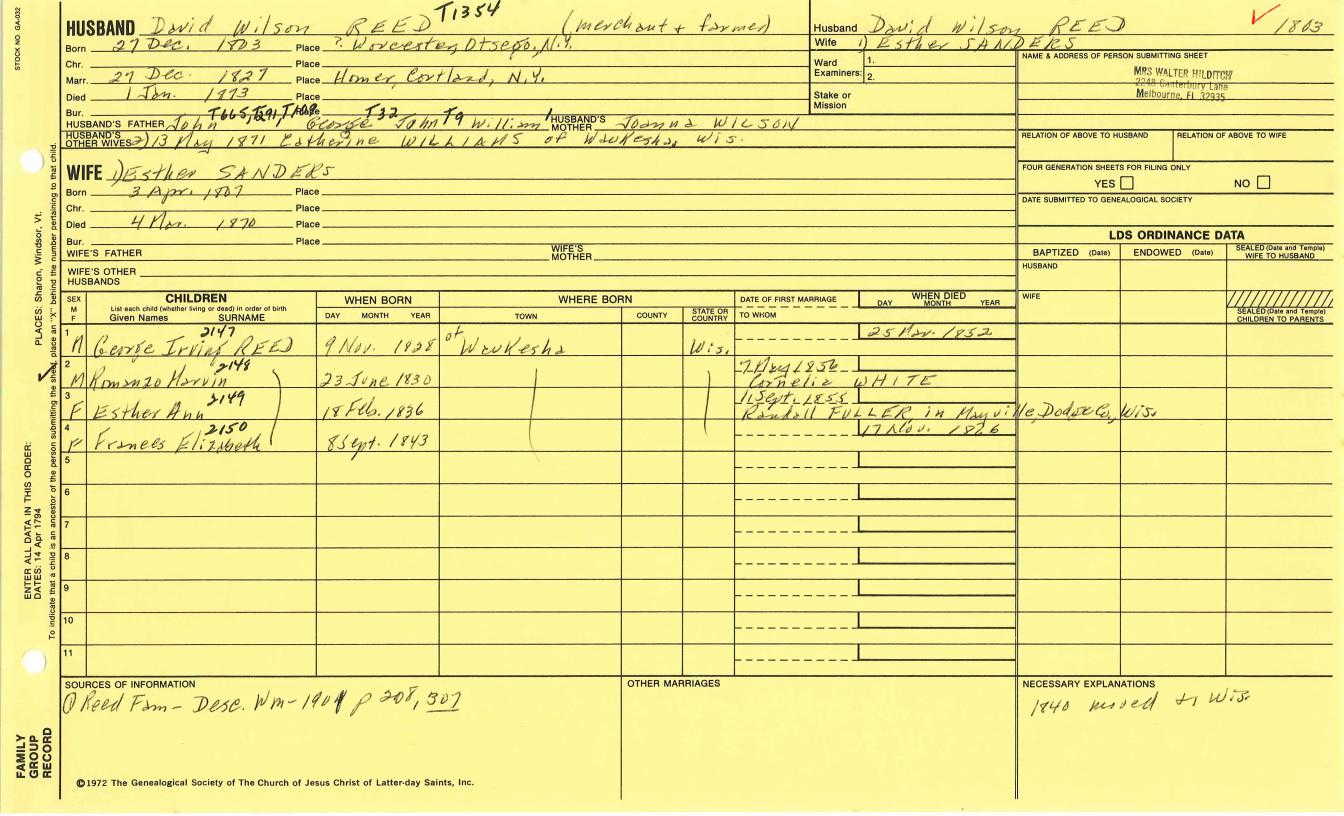 STOCK NO. GA-032
T1354
HUSBAND David Wilson REED (merchant & farmer)
Born 27 Dec. 1803 Place ? Worcester, Otsego, N.Y.
Chr. Place
Marr. 27 Dec. 1827 Place Homer, Cortland, N.Y.
Died 1 Jan. 1873 Place
Bur. Place
T665, T291, T109 T32 T9 1
HUSBAND'S FATHER John George John William HUSBAND'S MOTHER Joanna WILSON
HUSBAND'S OTHER WIVES 2) 13 May 1871 Catherine WILLIAMS of Waukesha, Wis.
Husband David Wilson REED 1803
Wife 1) Esther SANDERS
Ward Examiners: 1.
2.
Stake or Mission
NAME & ADDRESS OF PERSON SUBMITTING SHEET
MRS WALTER HILDITCH
2248 Canterbury Lane
Melbourne, FL 32935
RELATION OF ABOVE TO HUSBAND RELATION OF ABOVE TO WIFE
FOUR GENERATION SHEETS FOR FILING ONLY
YES NO
DATE SUBMITTED TO GENEALOGICAL SOCIETY
WIFE 1) Esther SANDERS
Born 3 Apr. 1807 Place
Chr. Place
Died 4 Mar. 1870 Place
Bur. Place
WIFE'S FATHER WIFE'S MOTHER
WIFE'S OTHER HUSBANDS
LDS ORDINANCE DATA
BAPTIZED (Date) ENDOWED (Date) SEALED (Date and Temple) WIFE TO HUSBAND
HUSBAND
WIFE
SEALED (Date and Temple) CHILDREN TO PARENTS
SEX M F
CHILDREN
List each child (whether living or dead) in order of birth
Given Names SURNAME
WHEN BORN
DAY MONTH YEAR
WHERE BORN
TOWN COUNTY STATE OR COUNTRY
DATE OF FIRST MARRIAGE
TO WHOM
WHEN DIED
DAY MONTH YEAR
1 M George Irving REED 2147 9 Nov. 1828 of Waukesha Wis. 25 Mar. 1852
2 M Romanzo Marvin 2148 23 June 1830 7 May 1856 Cornelia WHITE
3 F Esther Ann 2149 18 Feb. 1836 11 Sept. 1855 Randall FULLER in Mayville, Dodge Co., Wis.
4 F Frances Elizabeth 2150 8 Sept. 1843 17 Nov. 1826
5
6
7
8
9
10
11
SOURCES OF INFORMATION
① Reed Fam- Desc. Wm- 1901 p 208, 307
OTHER MARRIAGES
NECESSARY EXPLANATIONS
1840 moved to Wis.
©1972 The Genealogical Society of The Church of Jesus Christ of Latter-day Saints, Inc.
FAMILY GROUP RECORD
ENTER ALL DATA IN THIS ORDER:
DATES: 14 Apr 1794
PLACES: Sharon, Windsor, Vt.
To indicate that a child is an ancestor of the person submitting the sheet, place an "X" behind the number pertaining to that child.